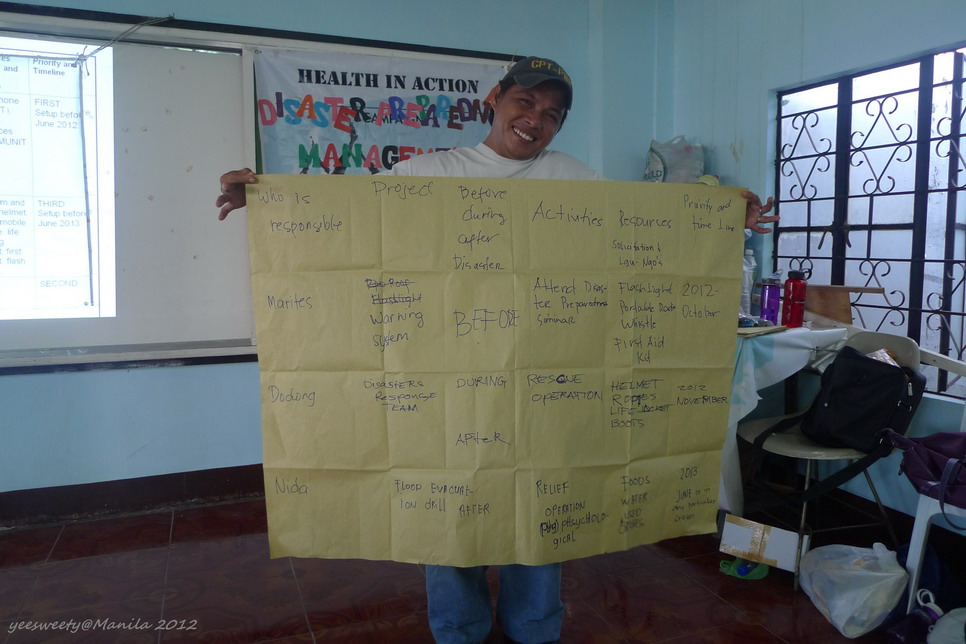 Priority and
Timeline
and
phone
FIRST
Setup before
June 2012
THIRD
Setup before
June 2013
and
helmet
mobile
life
first
flash
SECOND
HEALTH IN ACTION
DISASTER PREPAREDN
MANAGEME
Who is
responsible
Project
Before
during
after
Disaster
Activities
Resources
Solicitation &
Lgu-Ngo's
Priority and
time line
Marites
Flashlight
Warning
System
BEFORE
Attend Disas-
ter Preparedness
Seminar
Flashlight
Portable Radio
Whistle
First Aid
Kit
2012-
October
Dodong
Disasters
Response
TEAM
DURING
AFTER
RESCUE
OPERATION
HELMET
ROPES
LIFE JACKET
BOOTS
2012
NOVEMBER
Nida
FLOOD EVACUAT-
ION drill
AFTER
RELIEF
OPERATION
PHSYCHOLO-
GICAL
FOODS
WATER
USED
2013
JUNE
any particular
yeesweety@Manila 2012